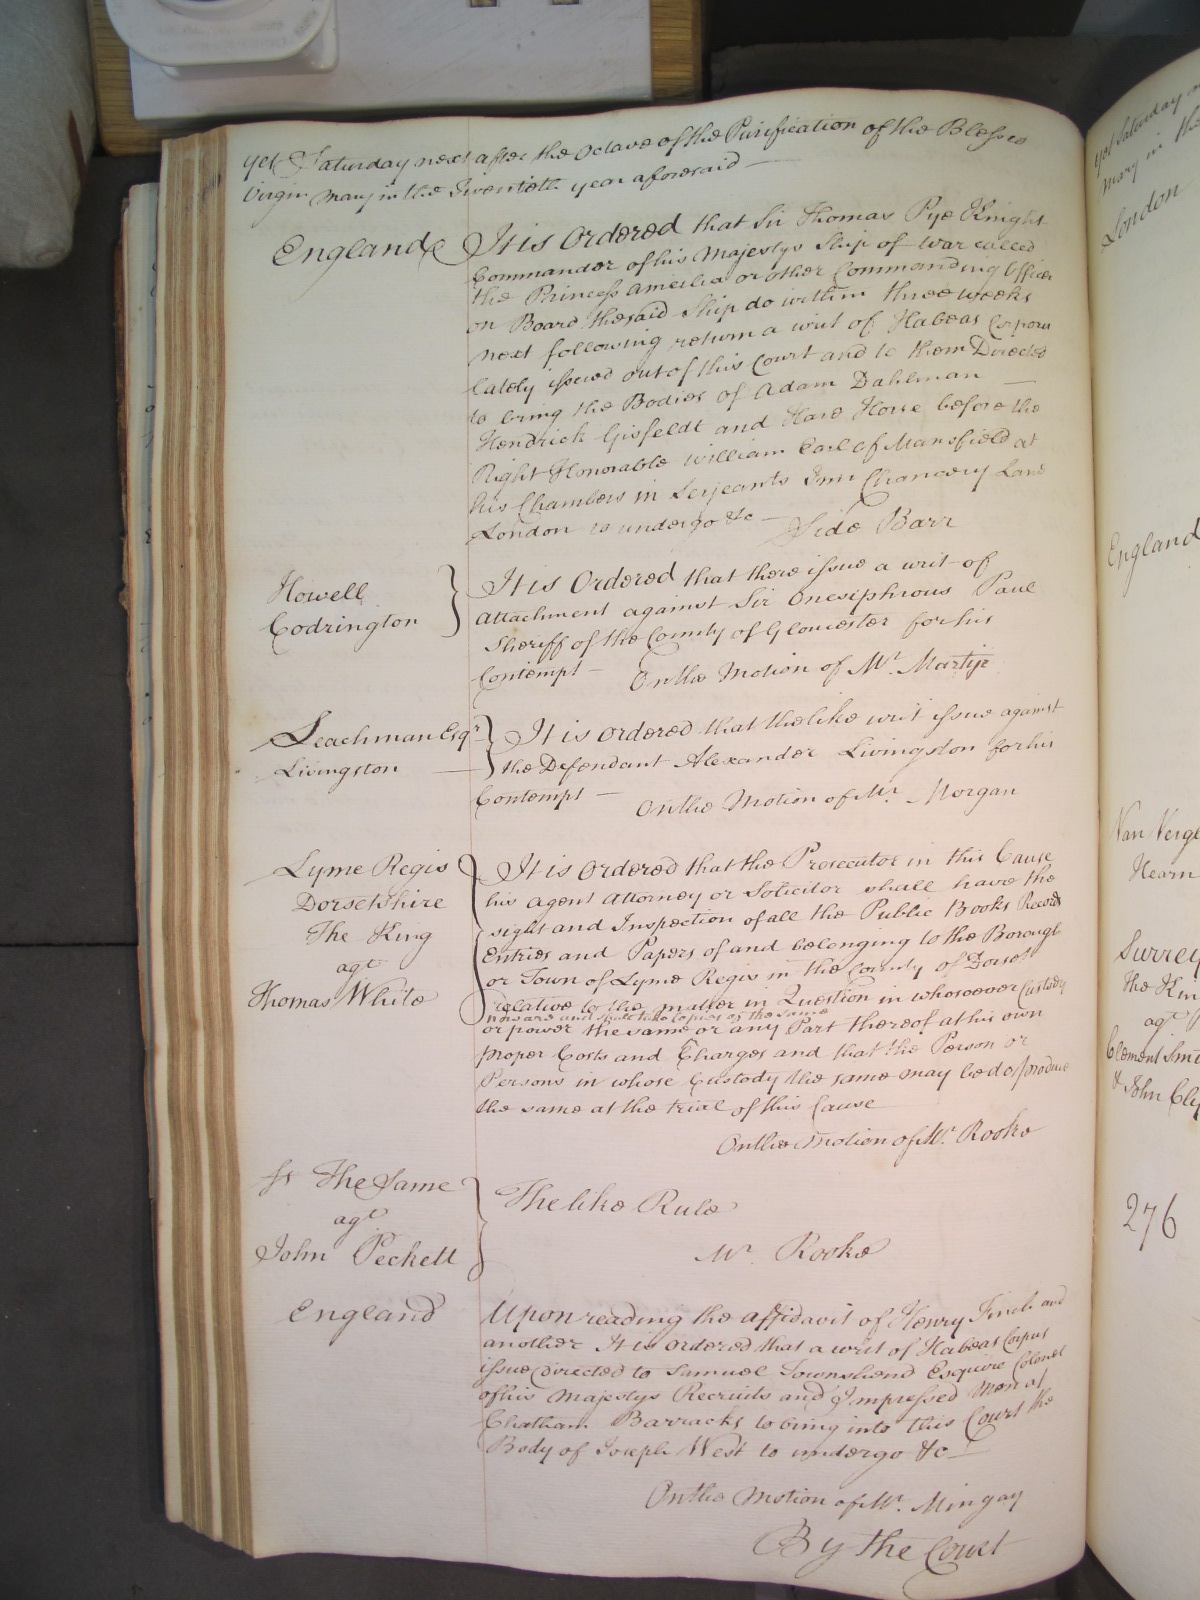 yet Saturday next after the Octave of the Purification of the Blessed
Virgin Mary in the Twentieth year aforesaid
England
It is Ordered that Sir Thomas Pye Knight
Commander of his Majestys Ship of War called
the Princess Amelia or other Commanding Officer
on Board the said Ship do within three weeks
next following return a writ of Habeas Corpora
lately issued out of this Court and to them Directed
to bring the Bodies of Adam Dahlman
Hendrick Gisfeldt and Hare Horse before the
Right Honorable William Earl of Mansfield at
his Chambers in Serjeants Inn Chancery Lane
London to undergo &c Side Barr
Howell
Codrington
It is Ordered that there issue a writ of
Attachment against Sir Onesiphrous Paul
Sheriff of the County of Gloucester for his
Contempt On the Motion of Mr.
Leachman Esqr
Livingston
It is Ordered that the like writ issue against
the Defendant Alexander Livingston for his
Contempt On the Motion of Mr. Morgan
Lyme Regis
Dorsetshire
The King
agt
Thomas White
It is Ordered that the Prosecutor in this Cause
his Agent Attorney or Solicitor shall have the
sight and Inspection of all the Public Books Records
Entries and Papers of and belonging to the Borough
or Town of Lyme Regis in the County of Dorset
relative to the matter in Question in whosoever Custody
now are and shall take Copies of the same
or power the same or any Part thereof at his own
proper Costs and Charges and that the Person or
Persons in whose Custody the same may be do produce
the same at the trial of this Cause
On the Motion of Mr. Rooke
The Same
agt
John Peckett
The like Rule
Mr. Rooke
England
Upon reading the affidavit of Henry Finch and
another It is ordered that a writ of Habeas Corpus
issue directed to Samuel Townshend Esquire Colonel
of his Majestys Recruits and Impressed Men at
Chatham Barracks to bring into this Court the
Body of Joseph West to undergo &c
On the Motion of Mr. Mingay
By the Court
yet Saturday
Mary in the
London
England
Van
Hearn
Surrey
the
agt
Clement
& John
276